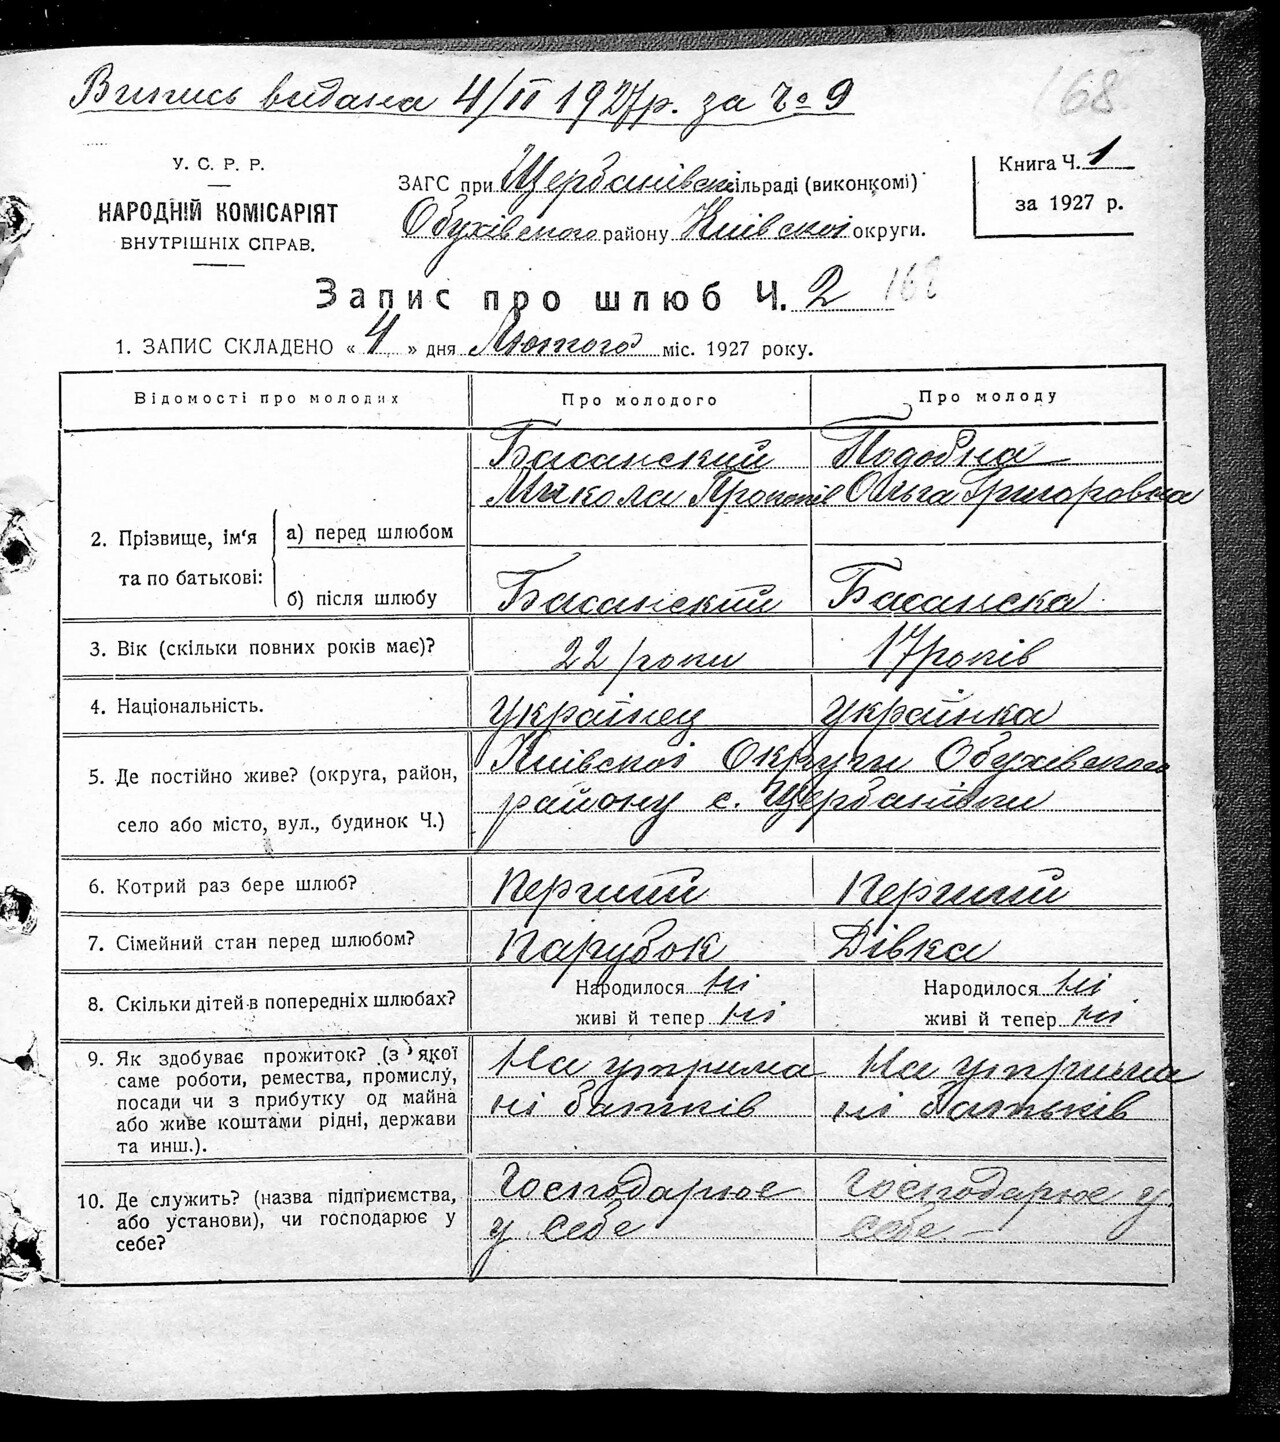 Випись видана 4/II 1927р. за Чо 9
168
У. С. Р. Р.
НАРОДНІЙ КОМІСАРІЯТ
ВНУТРІШНІХ СПРАВ.
ЗАГС при Щербанівск сільраді (виконкомі)
Обухівского району Київскоі округи.
Книга Ч. 1
за 1927 р.
Запис про шлюб Ч. 2 168
1. ЗАПИС СКЛАДЕНО « 4 » дня Лютого міс. 1927 року.
Відомості про молодих
Про молодого
Про молоду
2. Прізвище, ім'я та по батькові:
а) перед шлюбом
Басанский
Микола
Подобна
Ольга Григоровна
б) після шлюбу
Басанский
Басанска
3. Вік (скільки повних років має)?
22 роки
17 років
4. Національність.
українец
українка
5. Де постійно живе? (округа, район,
село або місто, вул., будинок Ч.)
Київскоі Округи Обухівского
району с. Щербанівки
6. Котрий раз бере шлюб?
Перший
Перший
7. Сімейний стан перед шлюбом?
Парубок
Дівка
8. Скільки дітей в попередніх шлюбах?
Народилося ні
живі й тепер ні
Народилося ні
живі й тепер ні
9. Як здобуває прожиток? (з якої
саме роботи, ремества, промислу,
посади чи з прибутку од майна
або живе коштами рідні, держави
та инш.).
На утрима
ні батків
На утрима
ні батьків
10. Де служить? (назва підприємства,
або установи), чи господарює у
себе?
Господарює
у себе
Господарює у
себе –